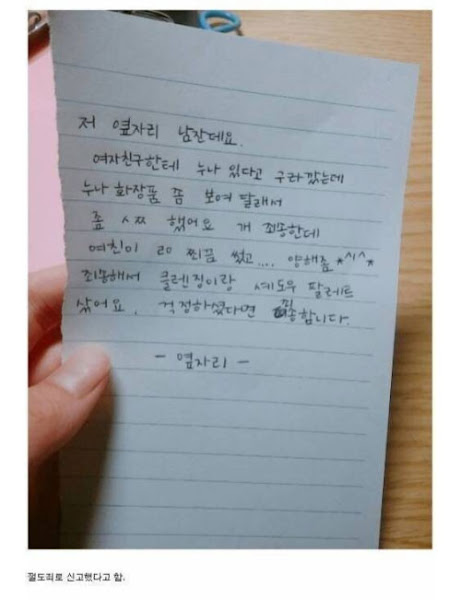 저 옆자리 남잔데요.
여자친구한테 누나 있다고 구라깠는데
누나 화장품 좀 보여 달래서
좀 ㅅㅉ 했어요 개 죄송한데
여친이 20 찌끔 썼고.... 양해좀 *^^*
죄송해서 클렌징이랑 셰도우 팔레트
샀어요. 걱정하셨다면 죄송합니다.
- 옆자리 -
절도죄로 신고했다고 함.